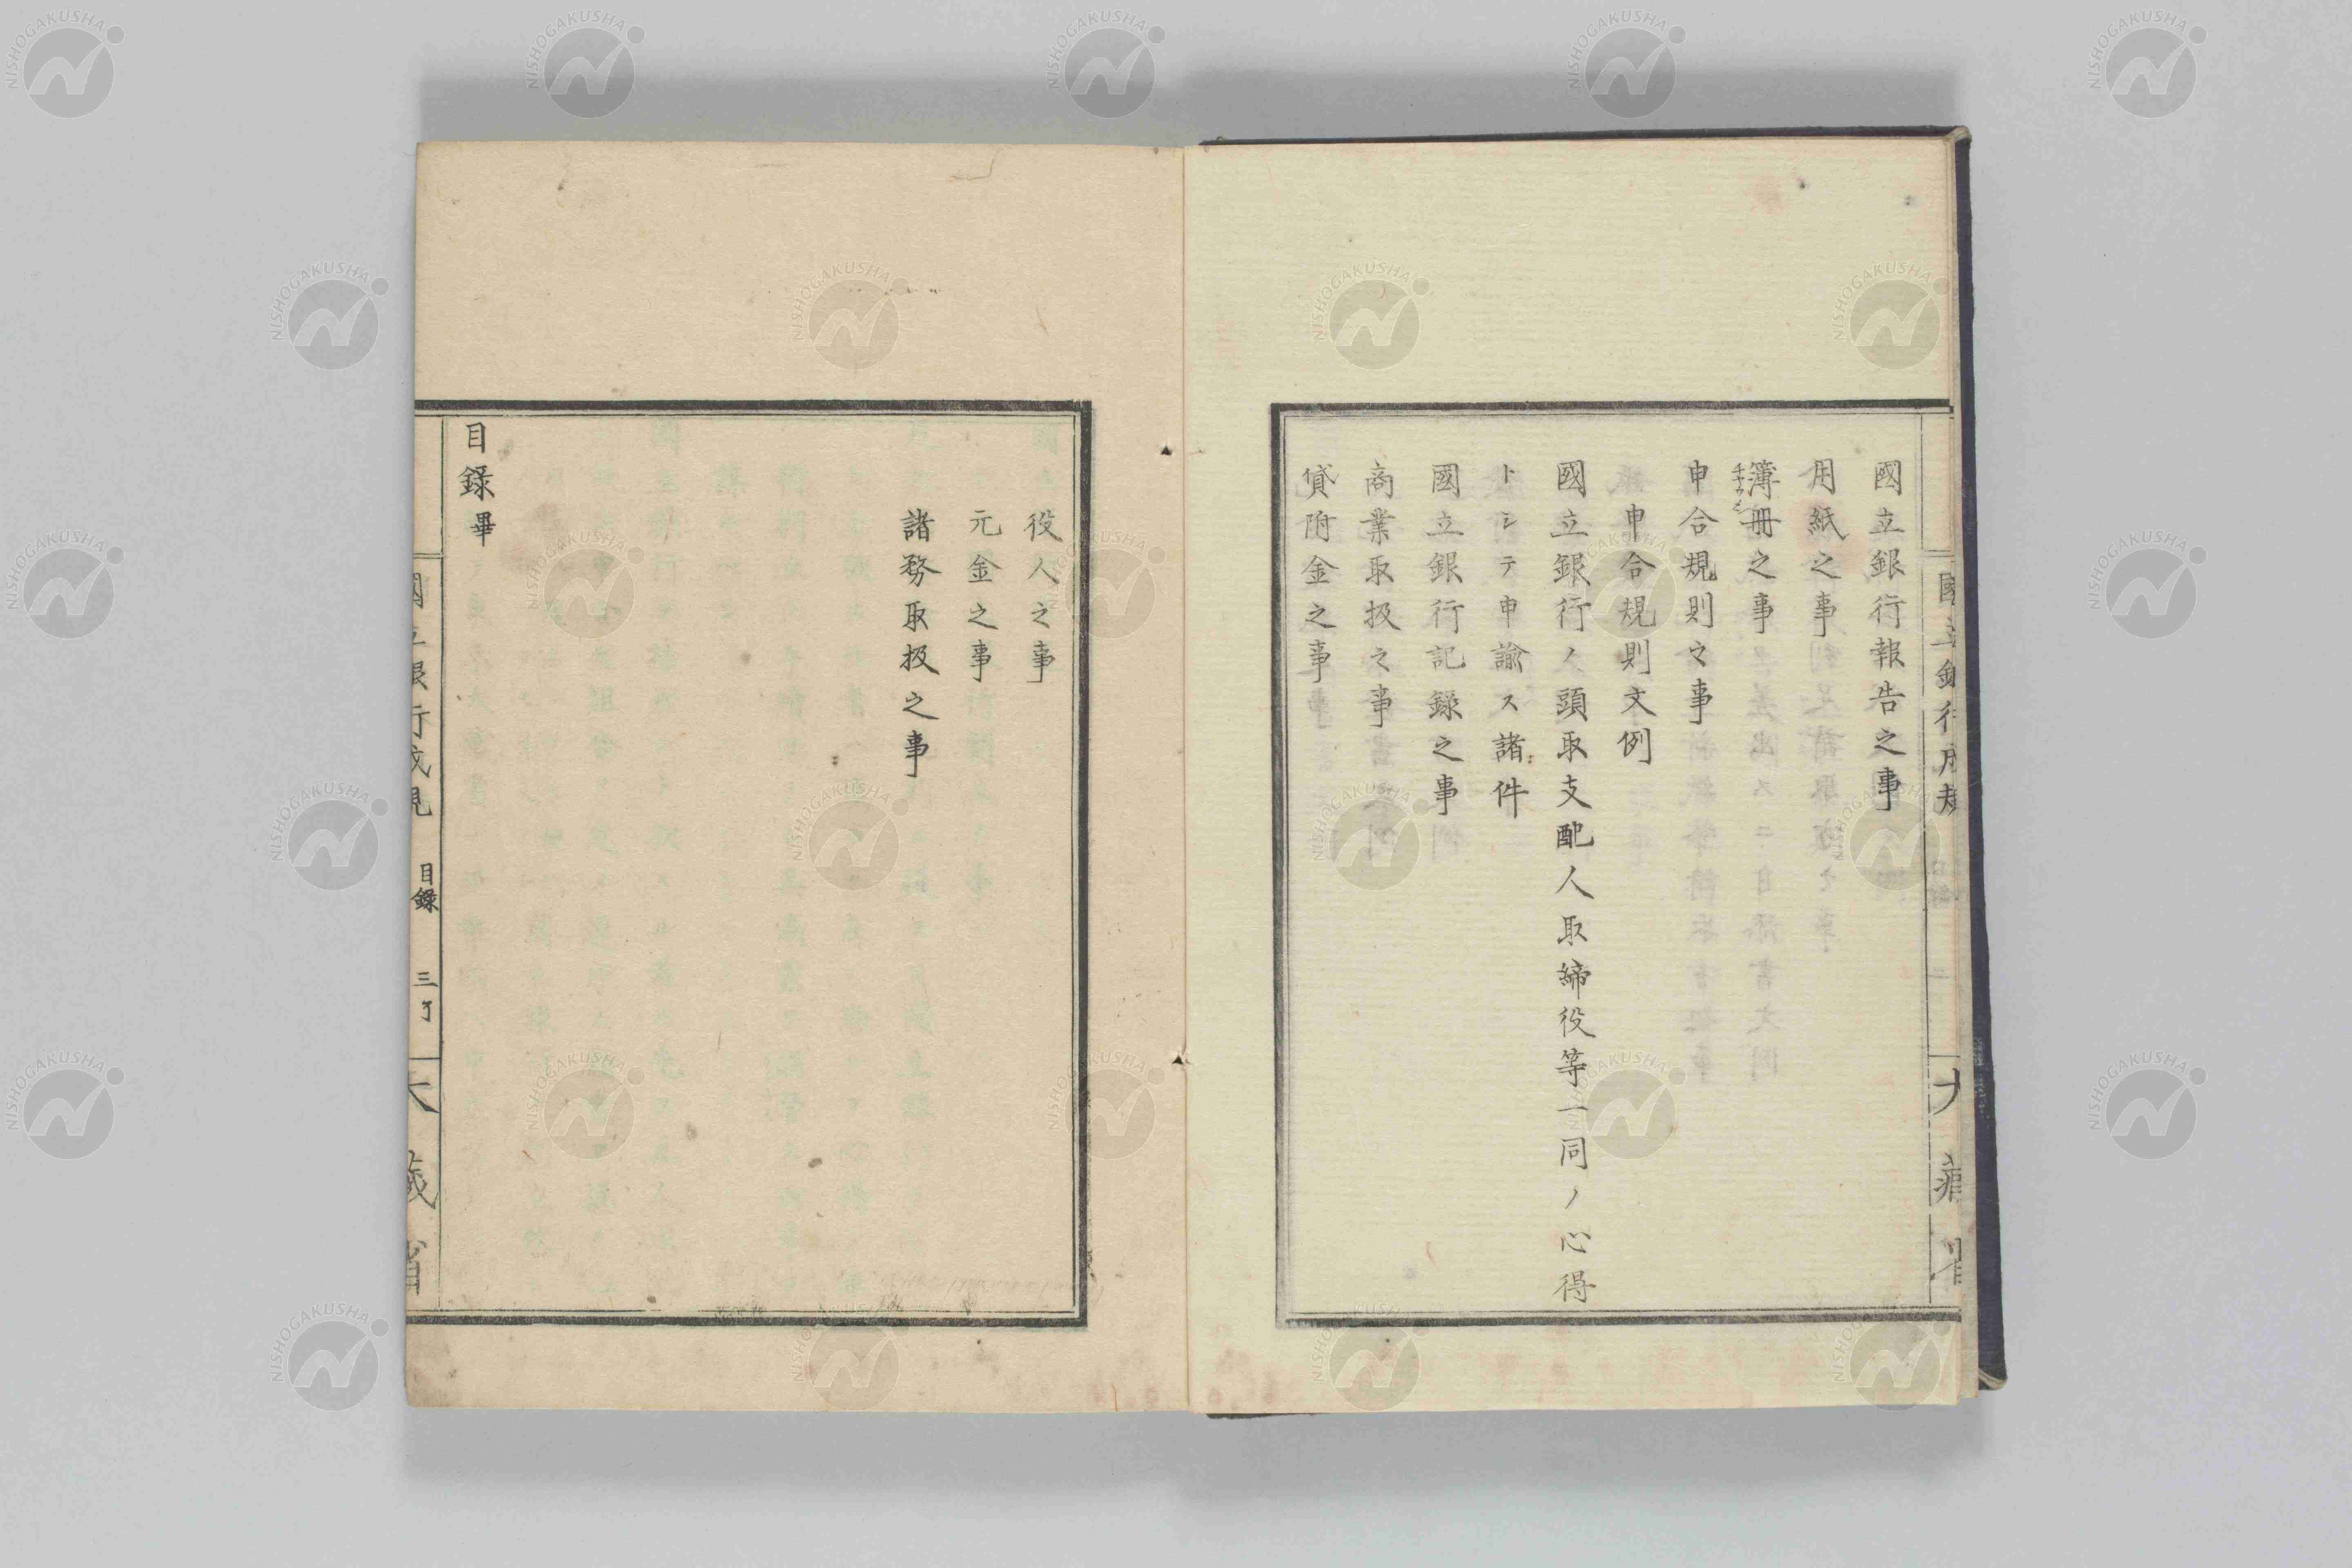 國立銀行報告之事
用紙之事
簿冊之事
申合規則之事
申合規則文例
國立銀行ノ頭取支配人取締役等一同ノ心得
トシテ申諭ス諸件
國立銀行記録之事
商業取扱之事
貸附金之事
役人之事
元金之事
諸務取扱之事
目錄畢
國立銀行成規 目錄 三 大藏省
NISHOGAKUSHA